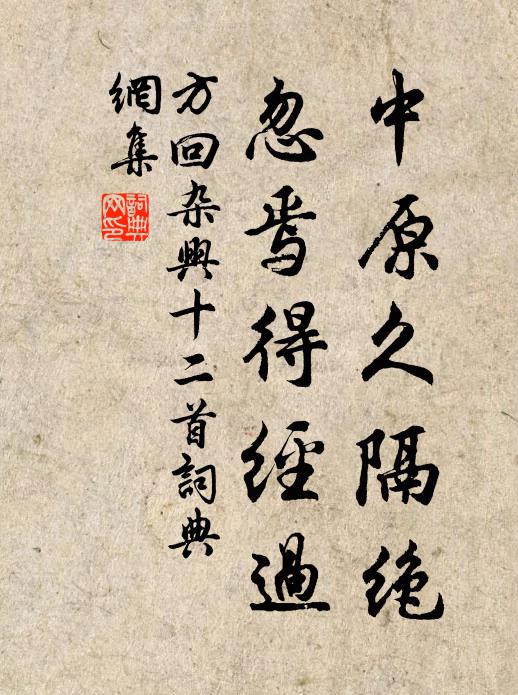 中原久隔绝
忽焉得經過
方回杂興十二首詞典
網集
詞典
网印